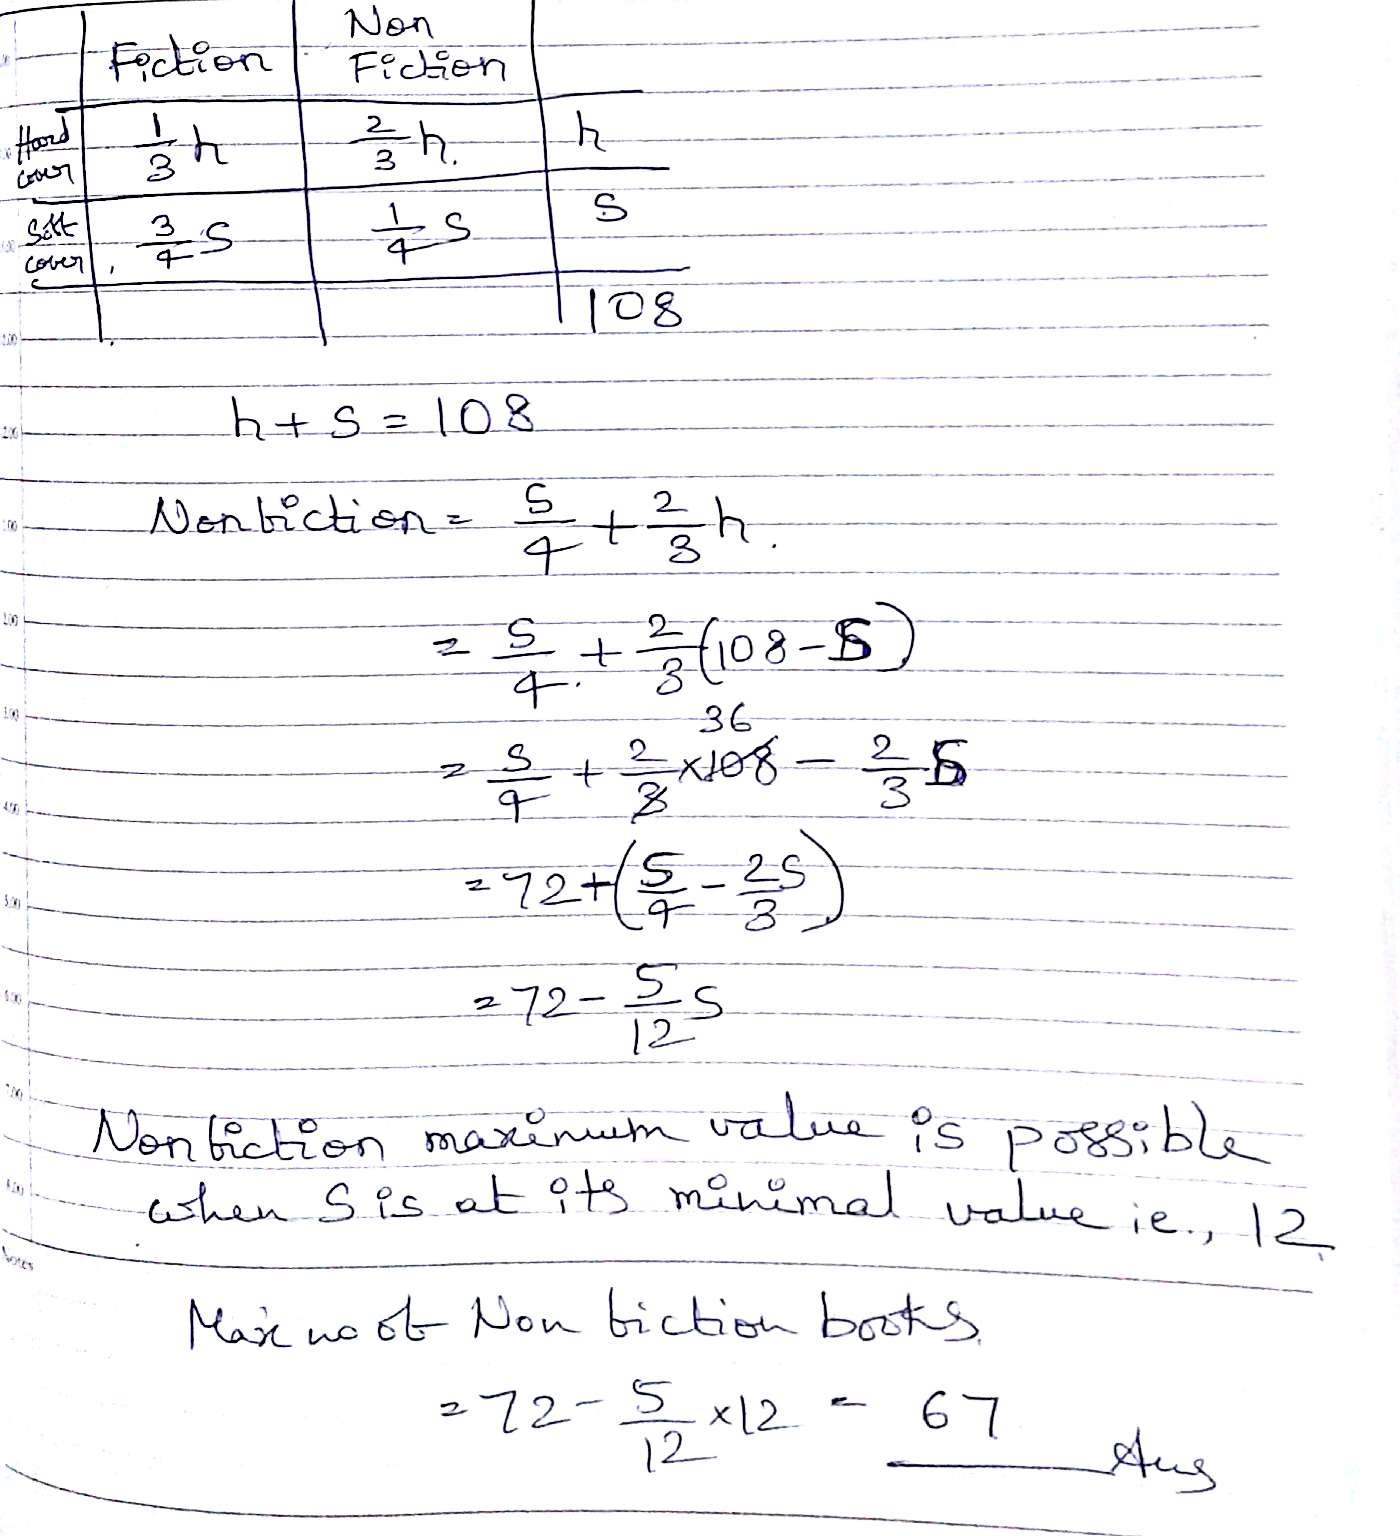 Non
Fiction Fiction
Hard cover 1/3 h 2/3 h. h
Soft cover 3/4 S 1/4 S S
108
h + S = 108
Non fiction = S/4 + 2/3 h.
= S/4 + 2/3 (108 - S)
36
= S/4 + 2/3 × 108 - 2/3 S
= 72 + (S/4 - 2S/3)
= 72 - 5/12 S
Non fiction maximum value is possible
when S is at its minimal value ie., 12.
Notes
Max no of Non fiction books
= 72 - 5/12 × 12 = 67 Ans